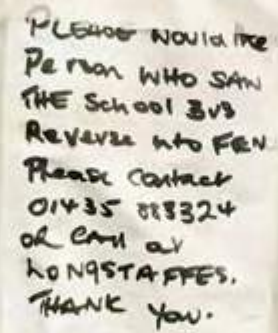 PLEASE WOULD THE
PERSON WHO SAW
THE SCHOOL BUS
Reverse into FEN
Please Contact
01435 883324
OR CALL AT
LONGSTAFFES.
THANK YOU.